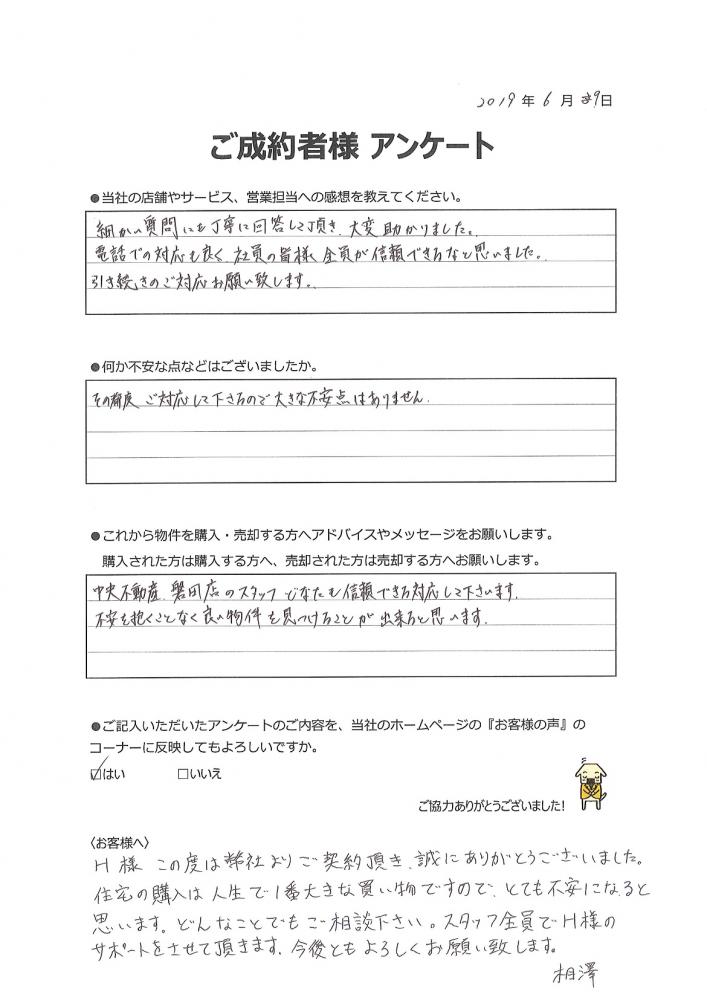 2019年6月29日
ご成約者様 アンケート
●当社の店舗やサービス、営業担当への感想を教えてください。
細かい質問にも丁寧に回答して頂き、大変助かりました。
電話での対応も良く、社員の皆様、全員が信頼できるなと思いました。
引き続きのご対応お願い致します。
●何か不安な点などはございましたか。
その都度、ご対応して下さるので大きな不安点はありません。
●これから物件を購入・売却する方へアドバイスやメッセージをお願いします。
購入された方は購入する方へ、売却された方は売却する方へお願いします。
中央不動産、磐田店のスタッフどなたも信頼できる対応して下さいます。
不安を抱くことなく良い物件を見つけることが出来ると思います。
●ご記入いただいたアンケートのご内容を、当社のホームページの『お客様の声』の
コーナーに反映してもよろしいですか。
☑はい □いいえ
ご協力ありがとうございました!
〈お客様へ〉
H様 この度は弊社よりご契約頂き、誠にありがとうございました。
住宅の購入は人生で1番大きな買い物ですので、とても不安になると
思います。どんなことでもご相談下さい。スタッフ全員でH様の
サポートをさせて頂きます。今後ともよろしくお願い致します。
相澤